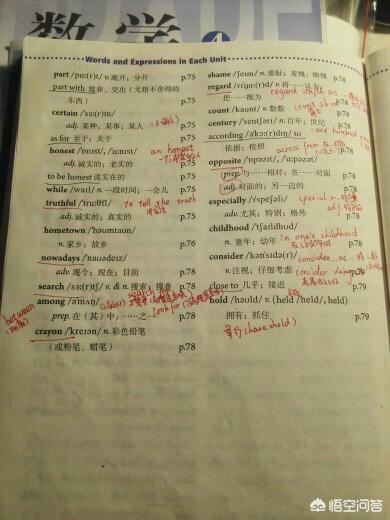 数学
Words and Expressions in Each Unit
part /pɑː(r)t/ v. 离开；分开 p.75
part with 放弃、交出（尤指不舍得的
东西） p.75
certain /ˈsɜː(r)tn/
adj. 某种；某事；某人 p.75
as for 至于；关于 p.75
honest /ˈɒnɪst/, /ˈɑːnɪst/ an honest
adj. 诚实的；老实的 p.75
to be honest 说实在的 p.75
while /waɪl/ n. 一段时间；一会儿 p.75
truthful /ˈtruːθfl/ to tell the truth
adj. 诚实的；真实的 p.75
hometown /ˈhəʊmtaʊn/
n. 家乡；故乡 p.76
nowadays /ˈnaʊədeɪz/
adv. 现今；现在；目前 p.78
search /sɜː(r)tʃ/ v. & n. 搜索；搜查 p.78
among /əˈmʌŋ/ look for
between
prep. 在（其）中；……之一 p.78
crayon /ˈkreɪən/ n. 彩色铅笔 p.78
（或粉笔、蜡笔）
shame /ʃeɪm/ n. 羞耻；羞愧；惭愧 p.78
regard /rɪˈɡɑː(r)d/ v. 将……认为
把……视为 p.78
regard sth/sb as
count /kaʊnt/ v. 数数 p.78
century /ˈsentʃəri/ n. 百年；世纪 p.78
according /əˈkɔː(r)dɪŋ/ to
依据；按照 p.78
across from
opposite /ˈɒpəzɪt/, /ˈɑːpəzət/
prep. 与……相对；在……对面
adj. 对面的；另一边的 p.78
especially /ɪˈspeʃəli/
adv. 尤其；特别；格外 p.78
childhood /ˈtʃaɪldhʊd/
n. 童年；幼年 p.78
in one's childhood
consider /kənˈsɪdə(r)/ consider...as
v. 注视；仔细考虑 p.78
close to 几乎；接近 p.78
hold /həʊld/ v. (held /held/, held)
拥有；抓住 p.79
(have=hold)
悟空问答